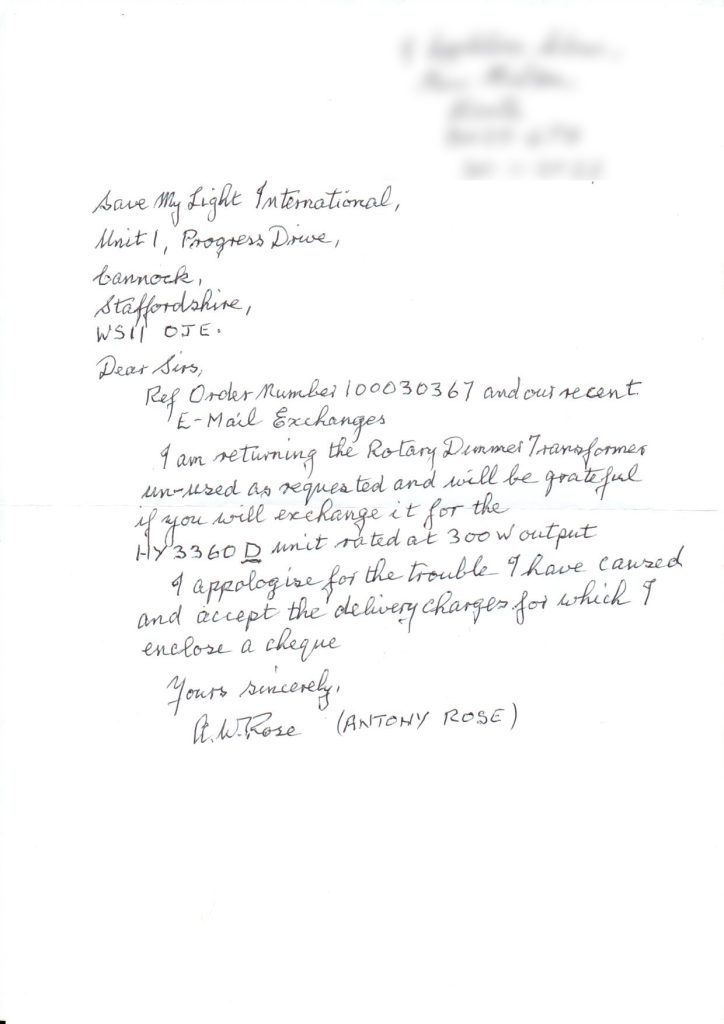 Save My Light International,
Unit 1, Progress Drive,
Cannock,
Staffordshire,
WS11 OJE.
Dear Sirs,
Ref Order Number 100030367 and our recent
E-Mail Exchanges
I am returning the Rotary Dimmer Transformer
un-used as requested and will be grateful
if you will exchange it for the
HY3360D unit rated at 300W output
I appologise for the trouble I have caused
and accept the delivery charges for which I
enclose a cheque
Yours sincerely,
A.W.Rose (ANTONY ROSE)